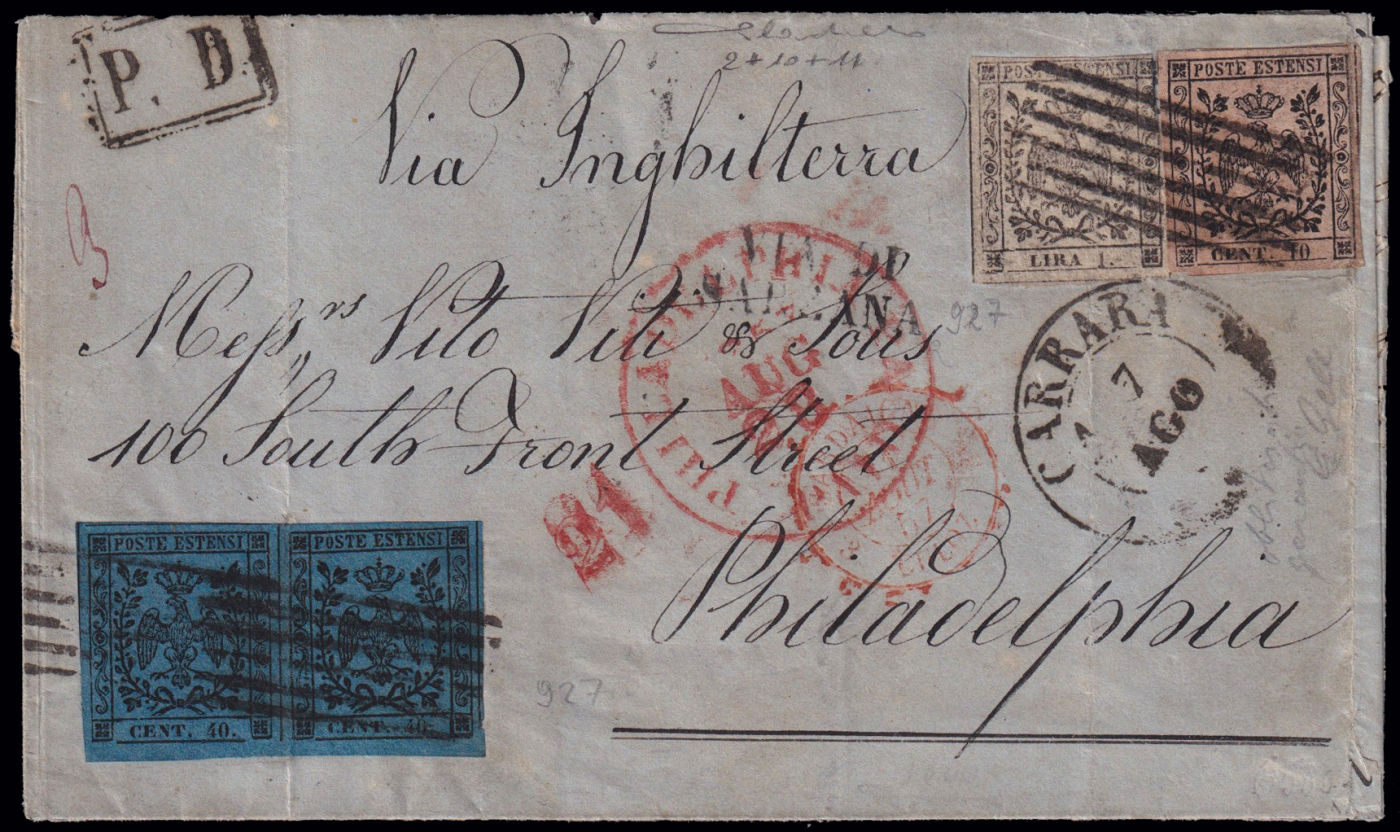 P. D.
2+10+11
Via Inghilterra
POSTE ESTENSI
LIRA 1.
POSTE ESTENSI
CENT. 10
3
VIA DI
SARZANA
927
Mess,,rs Vito Viti & Sons
PHILADELPHIA
AUG
PAID
CARRARA
7
AGO
100 South Front Street
21
Philadelphia
POSTE ESTENSI
CENT. 40.
POSTE ESTENSI
CENT. 40.
927